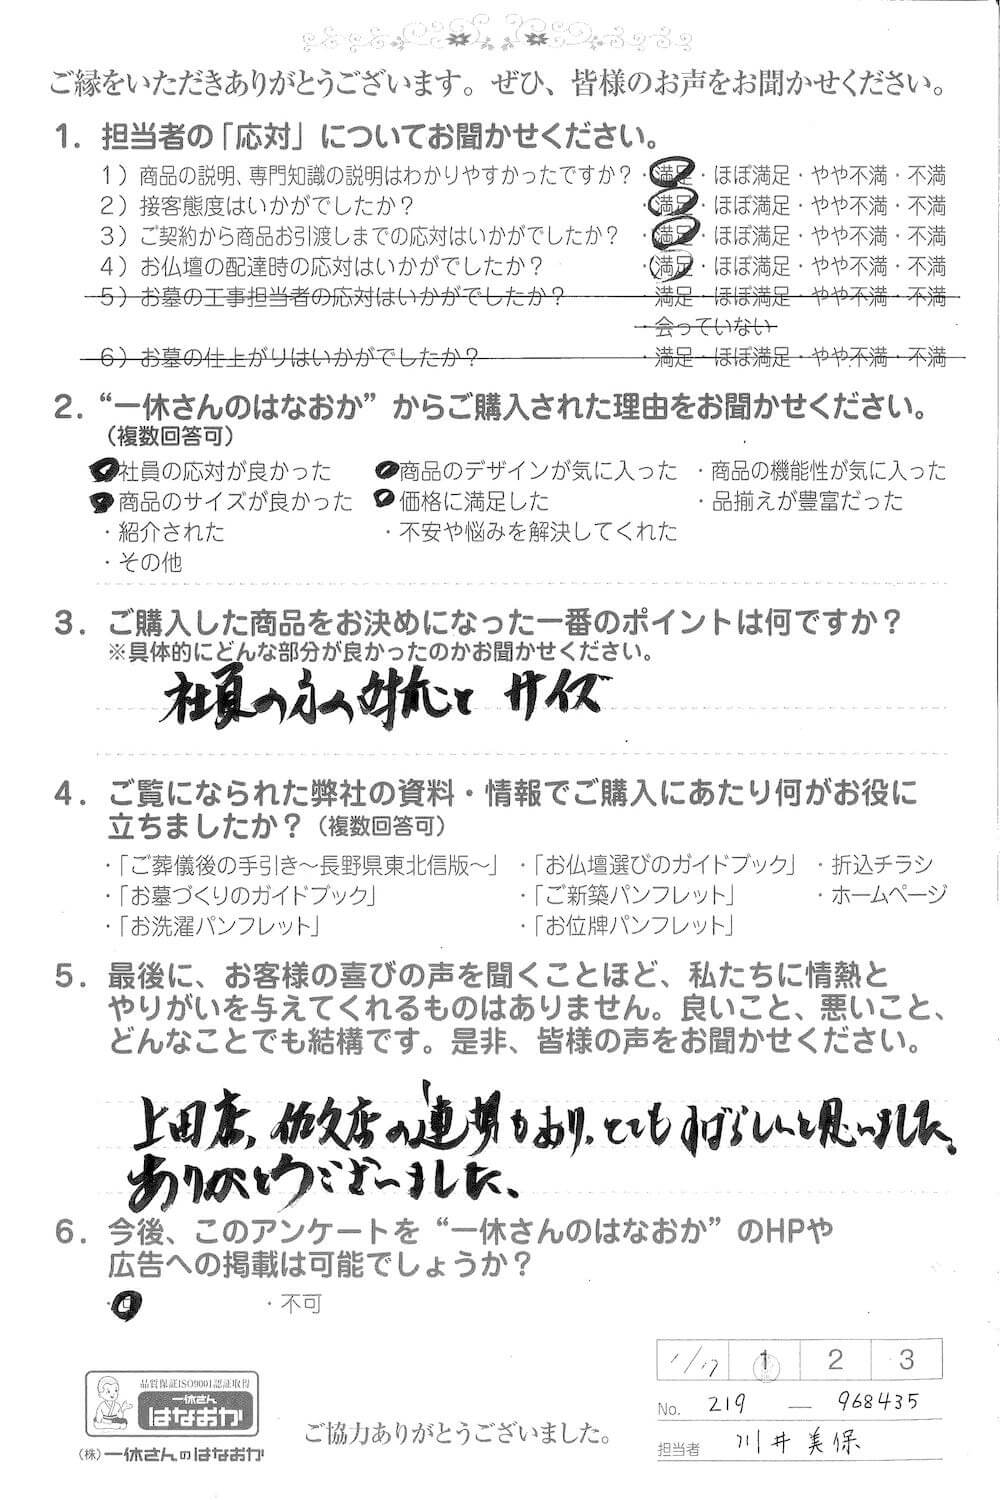 ご縁をいただきありがとうございます。ぜひ、皆様のお声をお聞かせください。
1．担当者の「応対」についてお聞かせください。
1）商品の説明、専門知識の説明はわかりやすかったですか？・満足・ほぼ満足・やや不満・不満
2）接客態度はいかがでしたか？ ・満足・ほぼ満足・やや不満・不満
3）ご契約から商品お引渡しまでの応対はいかがでしたか？ ・満足・ほぼ満足・やや不満・不満
4）お仏壇の配達時の応対はいかがでしたか？ ・満足・ほぼ満足・やや不満・不満
5）お墓の工事担当者の応対はいかがでしたか？ ・満足・ほぼ満足・やや不満・不満
・会っていない
6）お墓の仕上がりはいかがでしたか？ ・満足・ほぼ満足・やや不満・不満
2．“一休さんのはなおか”からご購入された理由をお聞かせください。
（複数回答可）
社員の応対が良かった 商品のデザインが気に入った ・商品の機能性が気に入った
商品のサイズが良かった 価格に満足した ・品揃えが豊富だった
・紹介された ・不安や悩みを解決してくれた
・その他
3．ご購入した商品をお決めになった一番のポイントは何ですか？
※具体的にどんな部分が良かったのかお聞かせください。
社員の方の対応と サイズ
4．ご覧になられた弊社の資料・情報でご購入にあたり何がお役に
立ちましたか？（複数回答可）
・「ご葬儀後の手引き〜長野県東北信版〜」 ・「お仏壇選びのガイドブック」 ・折込チラシ
・「お墓づくりのガイドブック」 ・「ご新築パンフレット」 ・ホームページ
・「お洗濯パンフレット」 ・「お位牌パンフレット」
5．最後に、お客様の喜びの声を聞くことほど、私たちに情熱と
やりがいを与えてくれるものはありません。良いこと、悪いこと、
どんなことでも結構です。是非、皆様の声をお聞かせください。
上田店、佐久店の連携もあり、とてもすばらしいと思いました。
ありがとうございました。
6．今後、このアンケートを“一休さんのはなおか”のHPや
広告への掲載は可能でしょうか？
・可 ・不可
1/17 1 2 3
品質保証ISO9001認証取得
一休さん
はなおか
（株）一休さんのはなおか
ご協力ありがとうございました。
No. 219 — 968435
担当者 川井美保